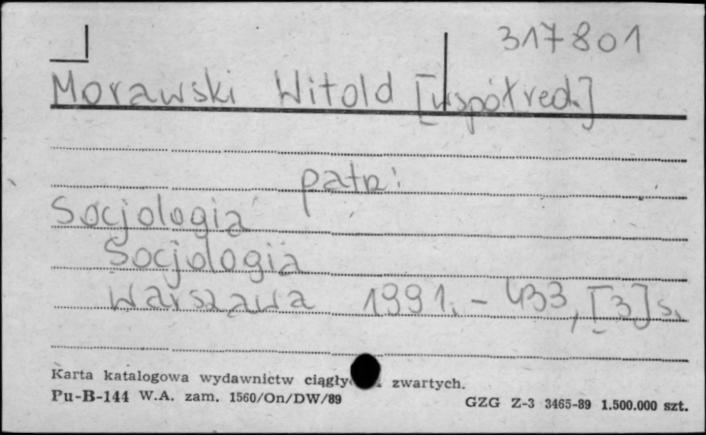 317801
Morawski Witold [współred.]
patrz:
Socjologia
Socjologia
Warszawa 1991. - 433, [3] s.
Karta katalogowa wydawnictw zwartych.
Pu-B-144 W.A. zam. 1560/On/DW/89
GZG Z-3 3465-89 1.500.000 szt.